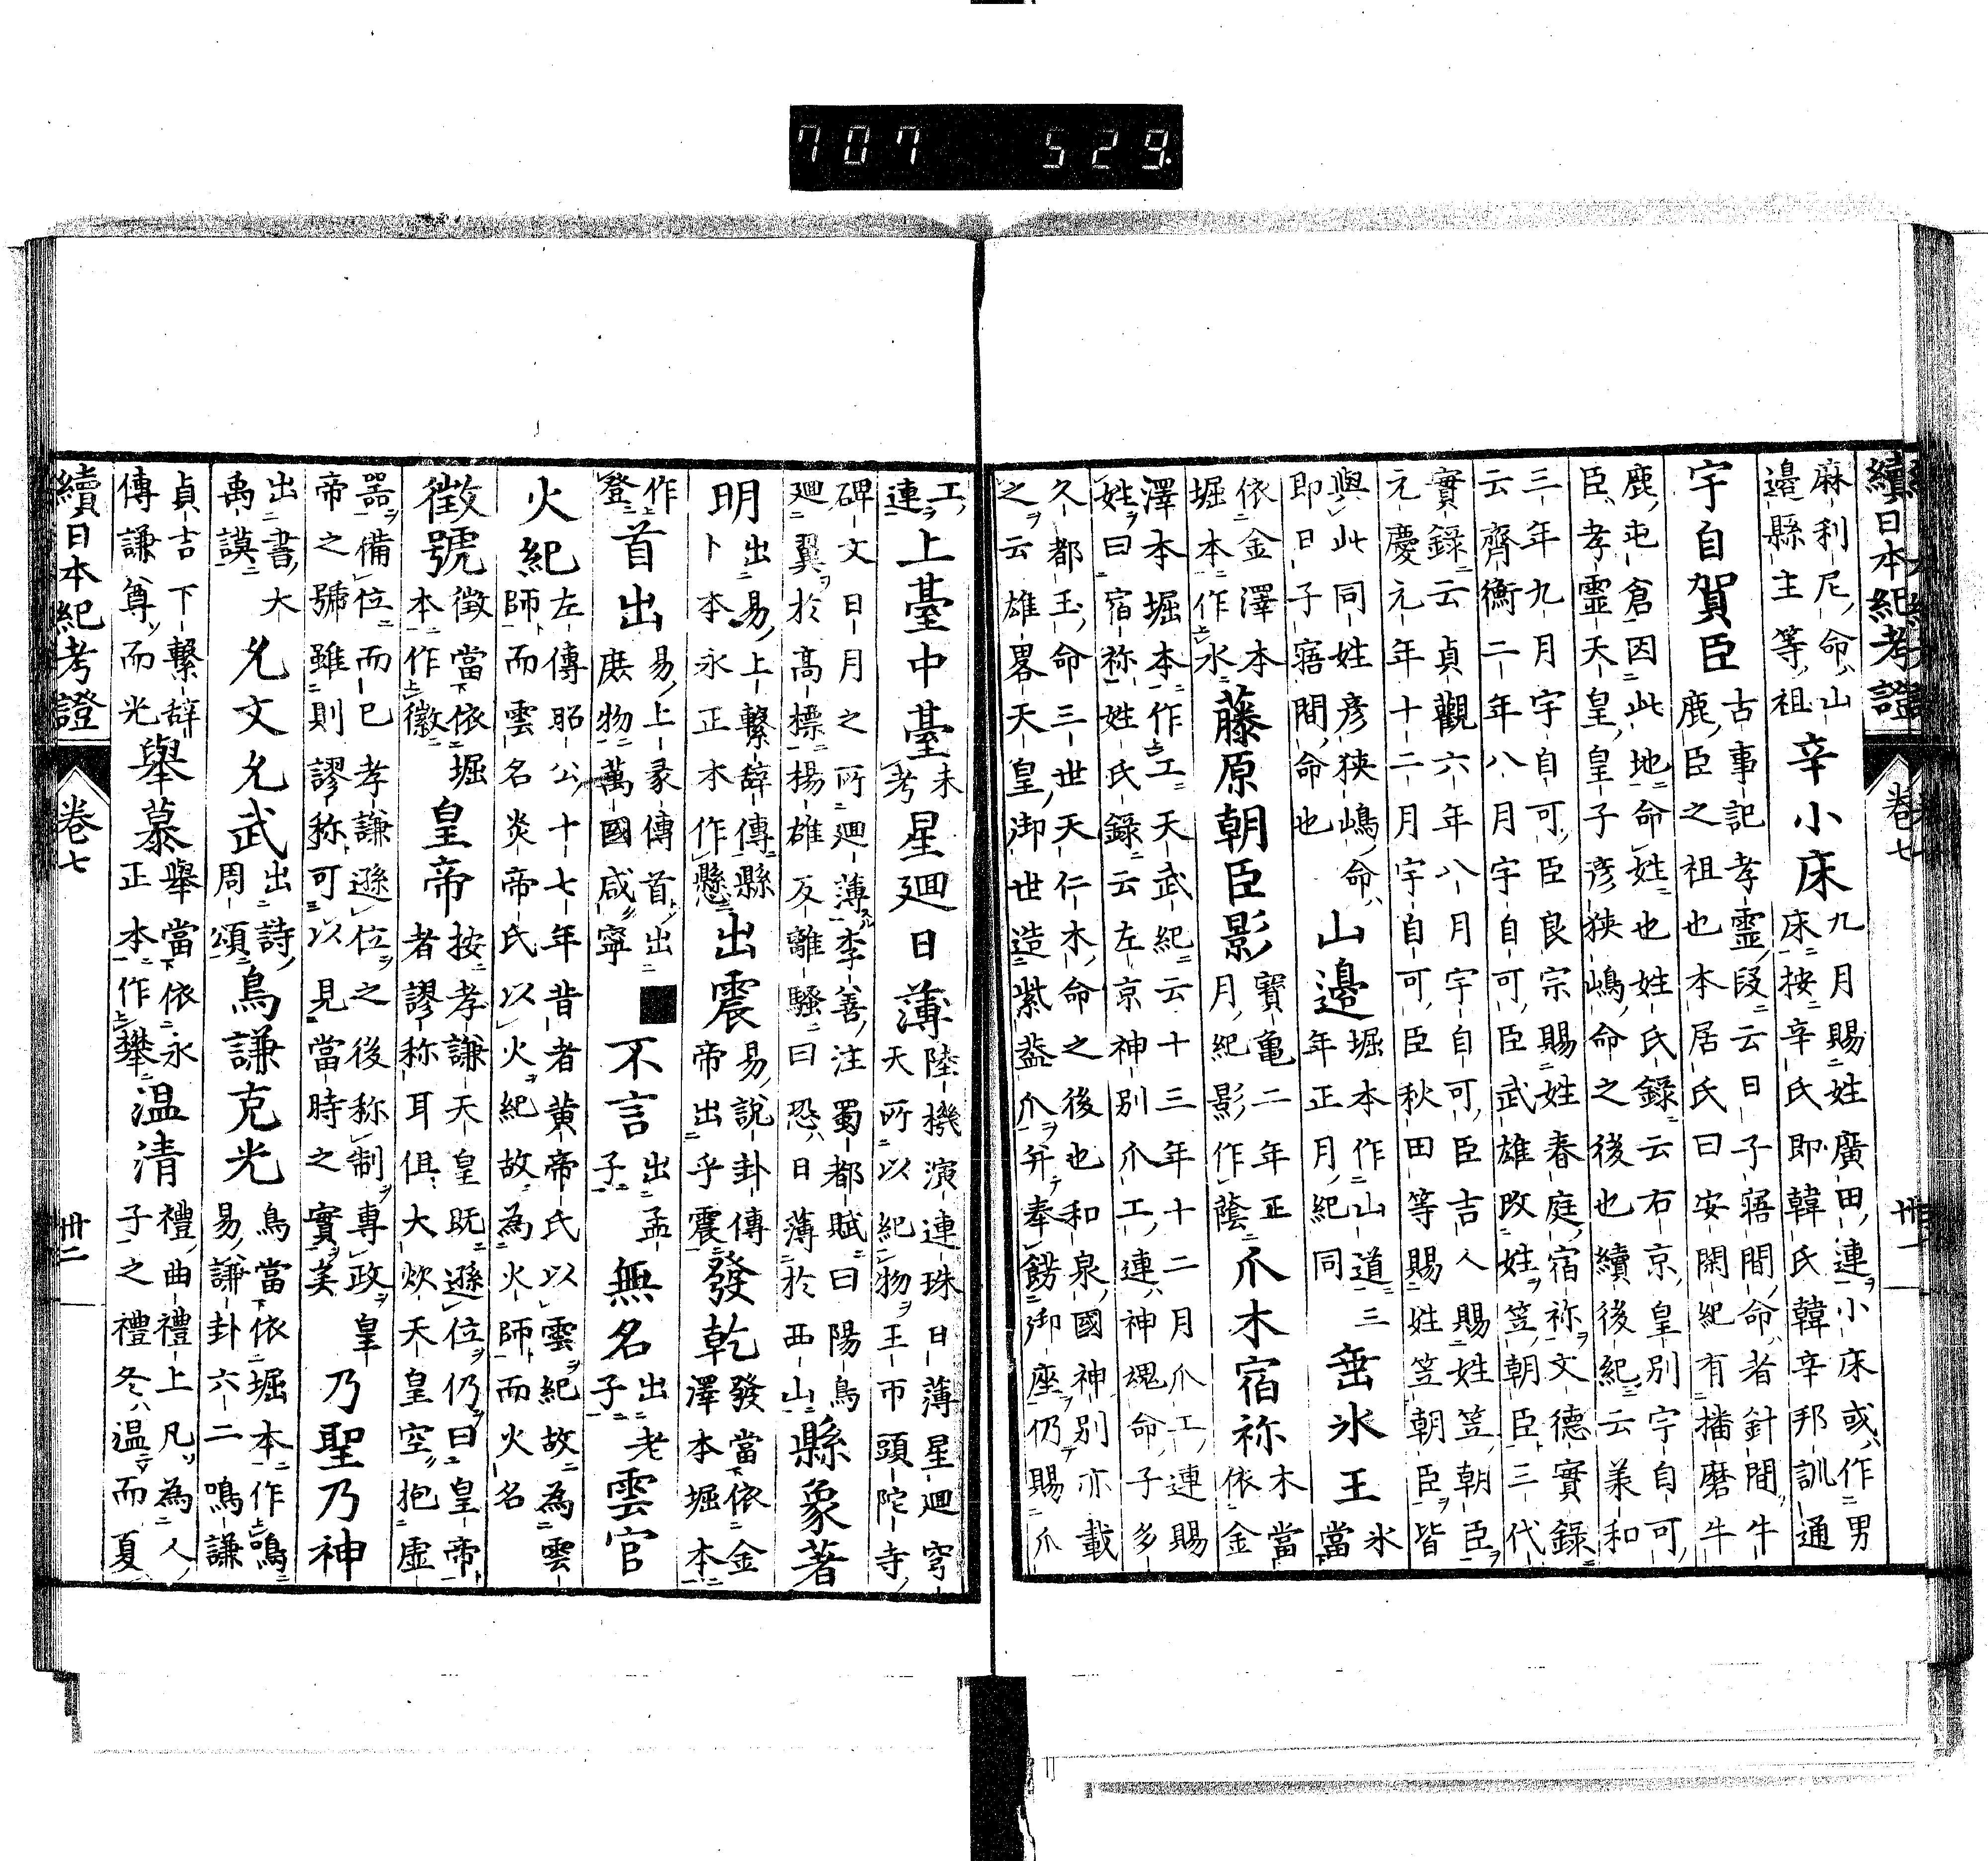 707 529.
續日本紀考證 卷七 卅一
麻利尼命山邉縣主等祖 辛小床 九月賜姓廣田連小床或作男床按辛氏即韓氏韓辛邦訓通
宇自賀臣 古事記孝靈段云日子寤間命者針間牛鹿臣之祖也本居氏曰安閑紀有播磨牛
鹿屯倉因此地命姓也姓氏錄云右京皇別宇自可臣孝靈天皇皇子彦狹嶋命之後也續後紀云美和
三年九月宇自可臣良宗賜姓春庭宿祢文德實錄云齊衡二年八月宇自可臣武雄改姓笠朝臣三代
實錄云貞觀六年八月宇自可臣吉人賜姓笠朝臣元慶元年十二月宇自可臣秋田等賜姓笠朝臣皆
與此同姓彦狹嶋命即日子寤間命也 山邉 堀本作山道三年正月紀同 垂氷王 氷當
依金澤本堀本作水 藤原朝臣影 寶亀二年正月紀影作蔭 爪木宿祢 木當依金
澤本堀本作工天武紀云十三年十二月爪工連賜姓曰宿祢姓氏錄云左京神別爪工連神魂命子多
久都玉命三世天仁木命之後也和泉國神別亦載之云雄畧天皇御世造紫葢爪并奉餝御座仍賜爪
工連 上臺中臺 未考 星廻日薄 陸機演連珠日薄星廻穹天所以紀物王巾頭陀寺
碑文日月之所廻薄李善注蜀都賦曰陽鳥廻翼於高標楊雄反離騷曰恐日薄於西山 縣象著
明 出易上繋辞傳縣卜本永正本作懸 出震 易說卦傳帝出乎震 發乾 發當依金澤本堀本
作登 首出 易上彖傳首出庶物萬國咸寧 ■不言 出孟子 無名 出老子 雲官
火紀 左傳昭公十七年昔者黄帝氏以雲紀故為雲師而雲名炎帝氏以火紀故為火師而火名
徵號 徵當依堀本作徽 皇帝 按孝謙天皇既遜位仍曰皇帝者謬称耳但大炊天皇空抱虚
器備位而已孝謙遜位之後称制專政皇帝之號雖則謬称可以見當時之實矣 乃聖乃神
出書大禹謨 允文允武 出詩周頌 鳥謙克光 鳥當依堀本作鳴易謙卦六二鳴謙
貞吉下繋辞傳謙尊而光 舉慕 舉當依永正本作攀 温清 禮曲禮上凡為人子之禮冬温而夏
續日本紀考證 卷七 卅二